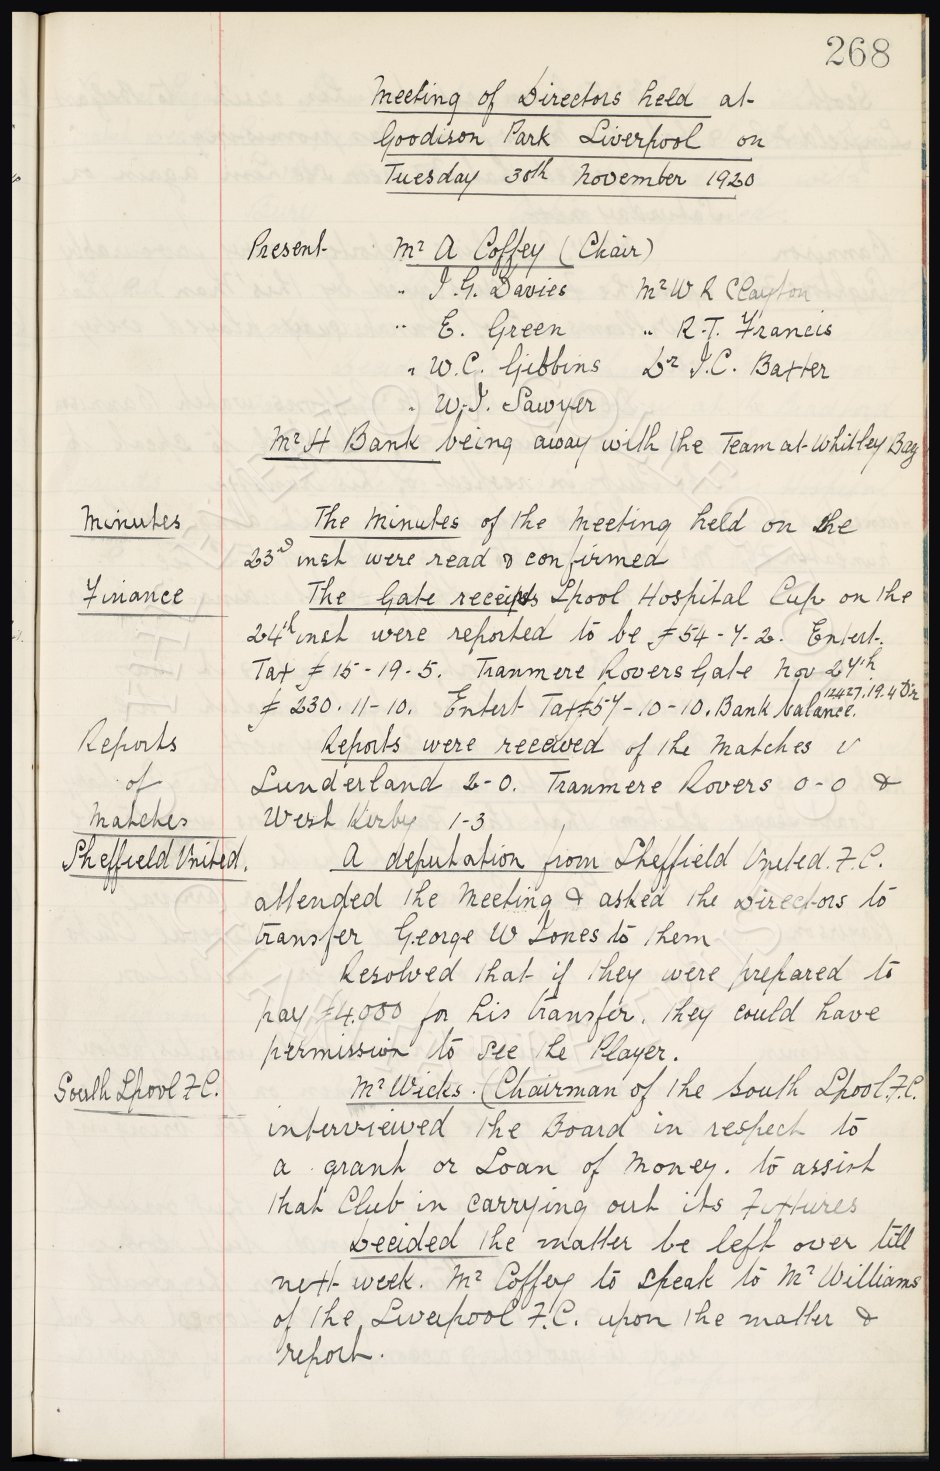 268
Meeting of Directors held at
Goodison Park Liverpool on
Tuesday 30th November 1920
Present Mr A Coffey (Chair)
" J.G. Davies Mr W R Clayton
" E. Green " R.T. Francis
" W.C. Gibbins Dr J.C. Baxter
" W.J. Sawyer
Mr H Bank being away with the Team at Whitley Bay
Minutes The Minutes of the Meeting held on the
23rd inst were read & confirmed
Finance The Gate receipts Lpool Hospital Cup on the
24th inst were reported to be £54-7-2. Entert.
Tax £15-19-5. Tranmere Rovers Gate Nov 27th
£230.11-10. Entert Tax £57-10-10. Bank balance. 12427.19.4 Dr
Reports Reports were received of the Matches v
of Sunderland 2-0. Tranmere Rovers 0-0 &
Matches West Kirby 1-3
Sheffield United. A deputation from Sheffield United. F.C.
attended the Meeting & asked the Directors to
transfer George W Jones to them
Resolved that if they were prepared to
pay £4.000 for his transfer. they could have
permission to see the Player.
South Lpool F.C. Mr Wicks. (Chairman of the South Lpool. F.C.
interviewed the Board in respect to
a grant or Loan of Money. to assist
that Club in carrying out its Fixtures
Decided the matter be left over till
next week. Mr Coffey to speak to Mr Williams
of the Liverpool F.C. upon the matter &
report.